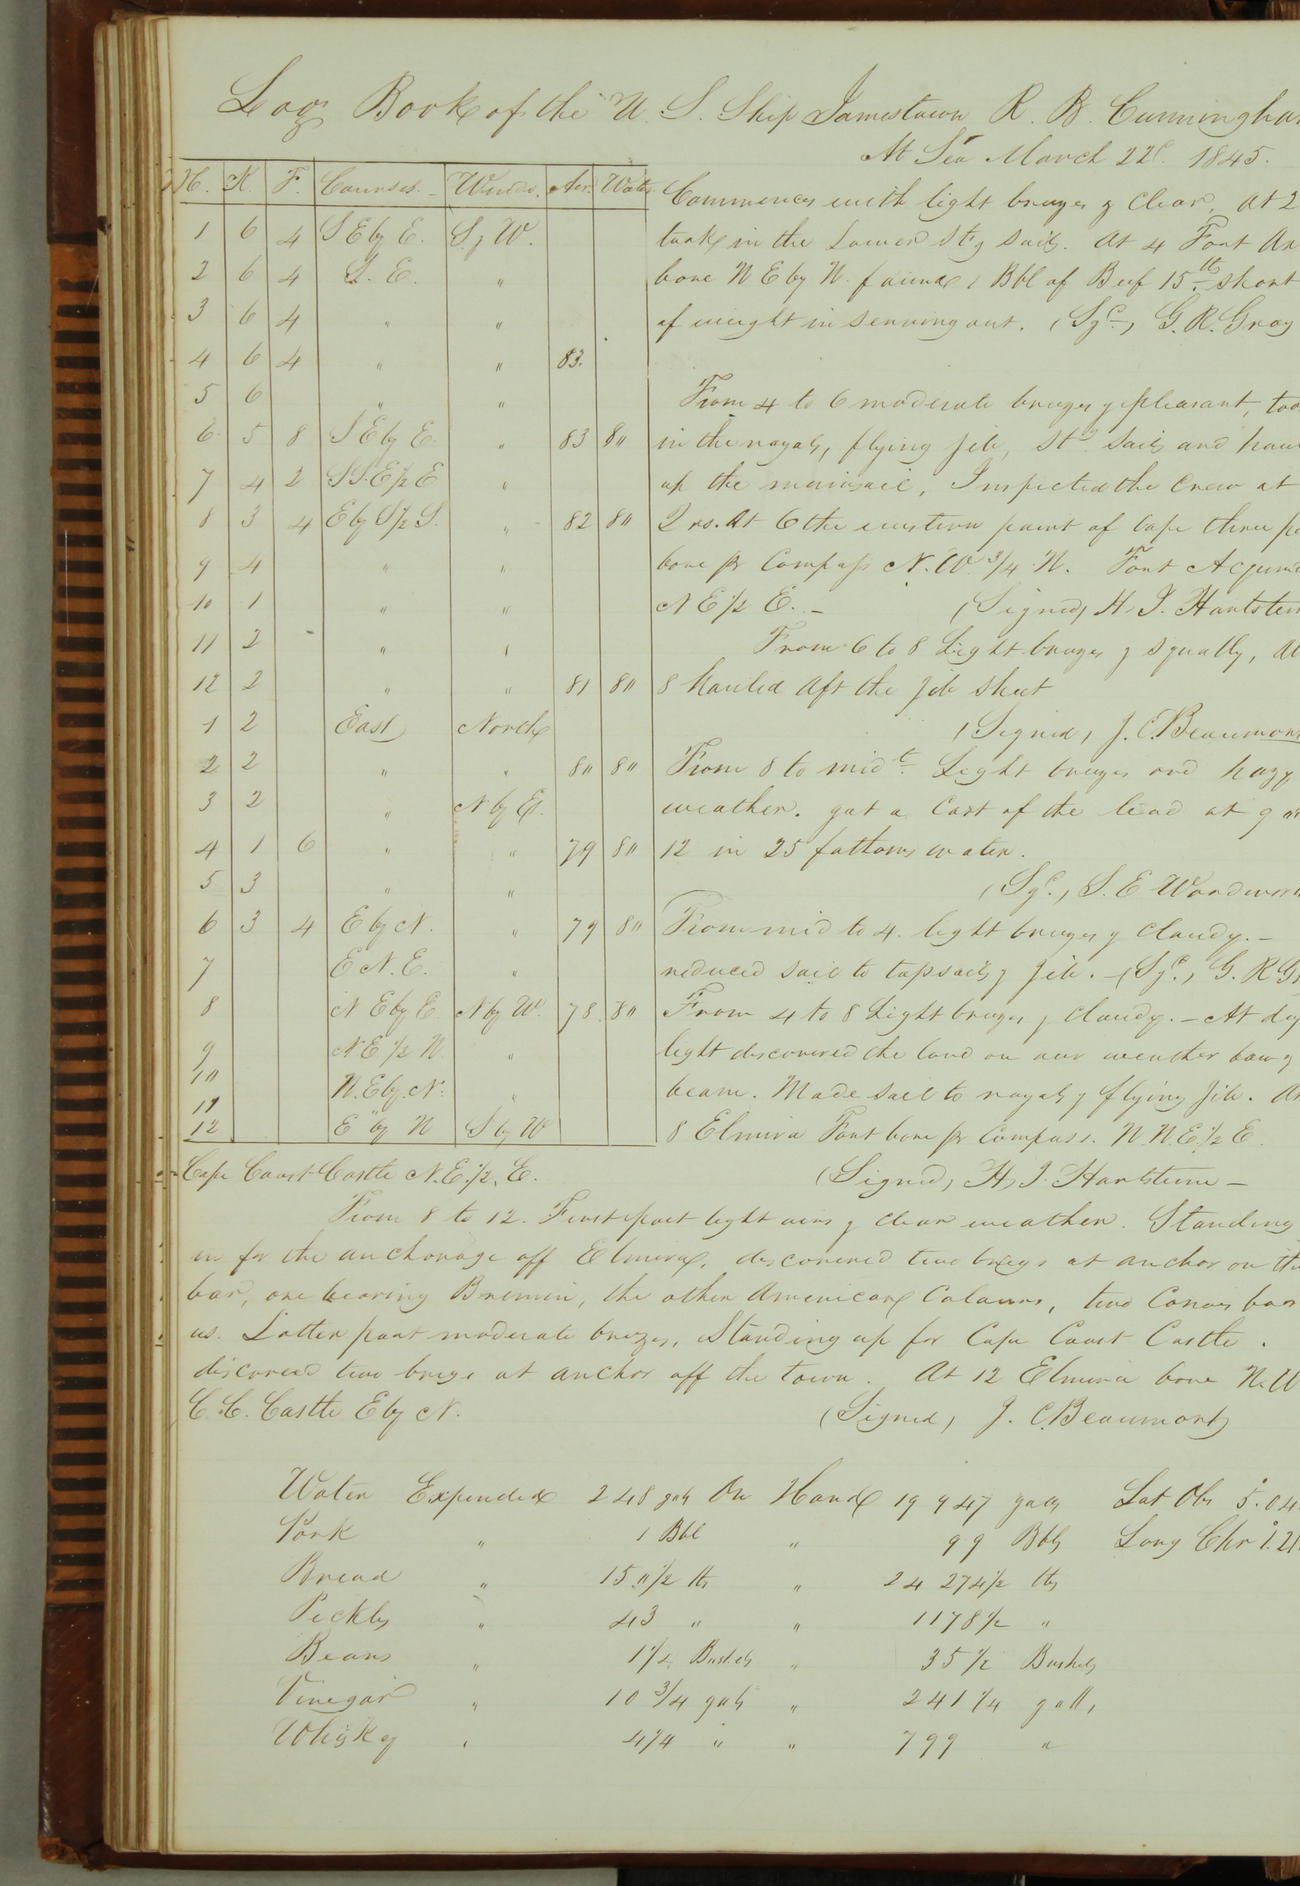 Log Book of the U. S. Ship Jamestown R. B. Cunningha
At Sea March 22d. 1845.
H. K. F. Courses. Winds. Air. Water
1 6 4 S E by E. S, W.
2 6 4 S. E. "
3 6 4 " "
4 6 4 " " 83.
5 6 " "
6 5 8 S E by E. " 83 80
7 4 2 S S. E ½ E "
8 3 4 E by S ½ S. " 82 80
9 4 " "
10 1 " "
11 2 " "
12 2 " " 81 80
1 2 East North
2 2 " " 80 80
3 2 " N by E.
4 1 6 " " 79 80
5 3 " "
6 3 4 E by N. " 79 80
7 E N. E. "
8 N E by E. N by W. 78 80
9 N E ½ N. "
10 N. E by. N. "
11
12 E by N S by W
Commences with light breezes & clear, at 2
took in the Lower Stg sails. At 4 Fort
bore N E by N. found 1 Bbl of Beef 15 lbs short
of weight in serving out. (Sgd.) G. R. Gray
From 4 to 6 moderate breezes & pleasant, too
in the royals, flying jib, Std. sails and hau
up the mainsail, Inspected the Crew at
2 rs. At 6 the western point of Cape three p
bore pr Compass N. W ¾ N. Fort
N E ½ E. – (Signed) H. J. Hartsten
From 6 to 8 Light breezes & squally, At
8 hauled Aft the Jib sheet
(Signed) J. C. Beaumont
From 8 to midt. Light breezes and hazy
weather. got a Cast of the lead at 9
12 in 25 fathoms water.
(Sgd.) S. E Woodwort
From mid to 4. light breezes & Cloudy. –
reduced sail to topsails & Jib. – (Sgd.) G. R G
From 4 to 8 Light breezes & cloudy. – At day
light discovered the land on our weather bow &
beam. Made sail to royals & flying Jib. At
8 Elmina Fort bore pr Compass. N N. E. ½ E.
Cape Coast Castle N. E. ½, E. (Signed) H, J. Hartstene –
From 8 to 12. First part light airs & clear weather. Standing
in for the anchorage off Elmina, discovered two brigs at anchor on the
bar, one bearing Bremin, the other American Colours, two Canoes
us. Latter part moderate breezes, Standing up for Cape Coast Castle.
discovered two brigs at anchor off the town. At 12 Elmina bore N. W
C. C. Castle E by N. (Signed) J. C. Beaumont
Water Expended 248 gals On Hand 19 947 galls Lat Obs 5°.04
Pork " 1 Bbl " 99 Bbls Long Chr 1°.21
Bread " 150½ lbs " 24 274½ lbs
Pickles " 43 " " 1178½ "
Beans " 1½ Bushels " 35½ Bushels
Vinegar " 10¾ gals " 241¼ galls
Whisky " 4¼ " " 799 "